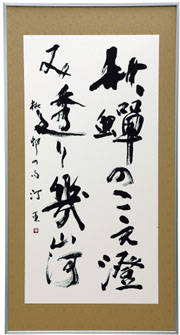 秋蟬のこゑ澄
み透り幾山河
楸邨の句 汀